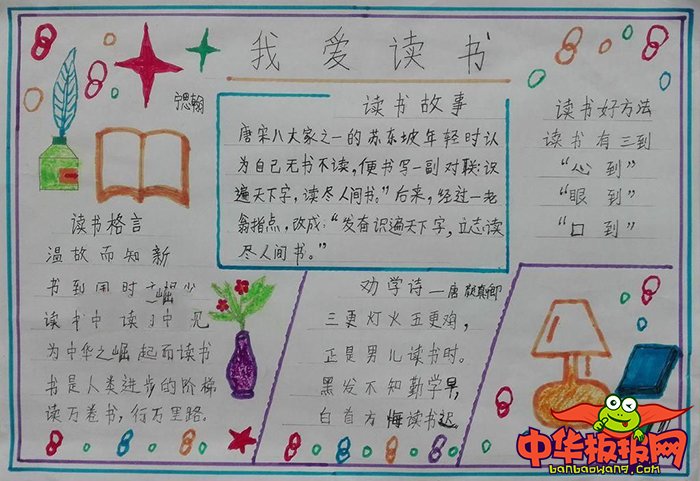 我爱读书
宁思翰
读书故事
唐宋八大家之一的苏东坡年轻时认
为自己无书不读,便书写一副对联:识
遍天下字,读尽人间书。”后来,经过一老
翁指点,改成:“发奋识遍天下字,立志读
尽人间书。”
读书好方法
读书有三到
“心到”
“眼到”
“口到”
读书格言
温故而知新
书到用时
读书中读 中见
为中华之崛起而读书
书是人类进步的阶梯
读万卷书,行万里路。
劝学诗—唐 颜真卿
三更灯火五更鸡,
正是男儿读书时。
黑发不知勤学早,
白首方悔读书迟
中华板报网
banbaowang.com